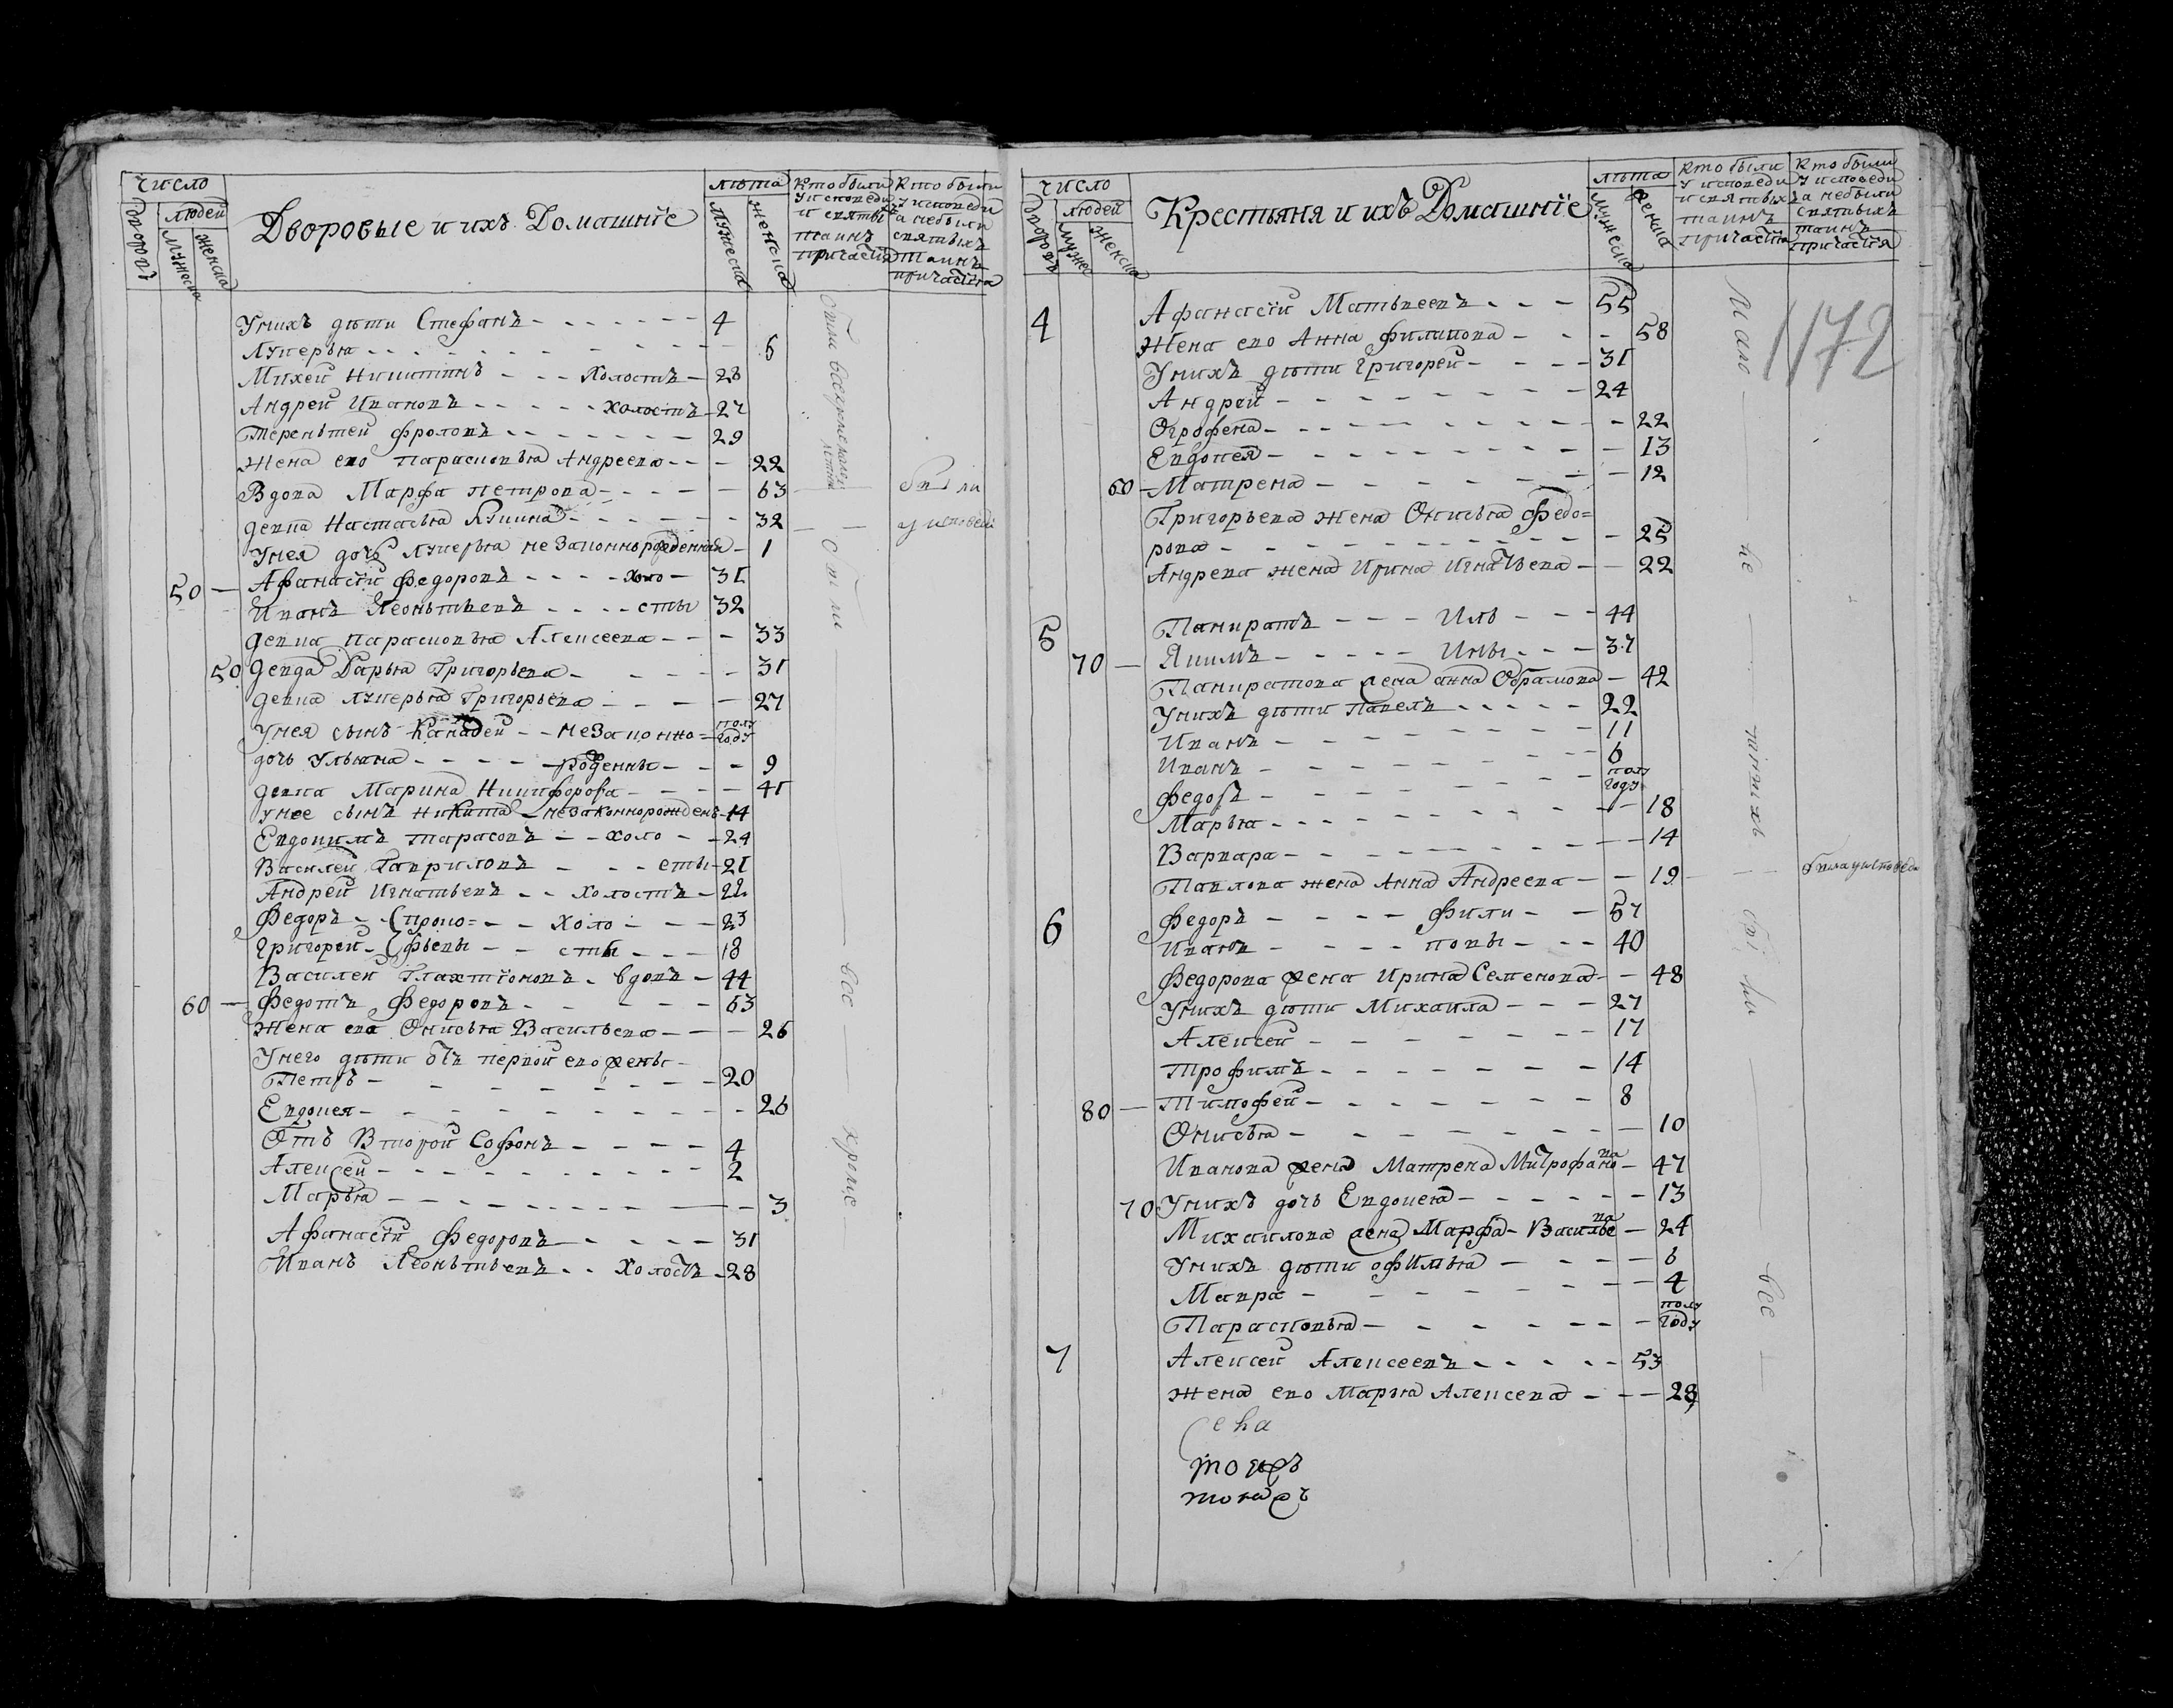 Число
Дворовъ
людей
мужеска
женска
Дворовые и ихъ Домашнїе
лѣта
мужеска
женска
Кто были
у исповеди
и святыхъ
таинъ
причастїя
Кто были
у исповеди
а небыли
святыхъ
таинъ
причастїя
Унихъ дѣти Стефанъ - - - 4
Лукерья - - - 5
Михей Никитинъ - - - Холостъ - 28
Андрей Ивановъ - - - холостъ - 27
Терентей Фроловъ - - - 29
Жена ево Парасковья Андреева - - - 22
Вдова Марфа Петрова - - - 63
были
девка Настасья Якима - - - 32
у исповеди
Унея дочь Лукерья не Законнорожденная - 1
50 - Афанасїй Федоровъ - - - холо - 31
Иванъ Леонтьевъ - - - сты 32
девка Парасковья Алексеева - - - 33
50 Девка Дарья Григорьева - - - 31
девка Лукерья Григорьева - - - 27
Унея сынъ - - незаконно = полу году
дочь Ульяна - - - рожденны - - - 9
девка Марина Никифорова - - - 41
унее сынъ Никита - незаконнорожденъ - 14
Евдокимъ Тарасовъ - - холо - - 24
Василей Гавриловъ - - - сты - 21
Андрей Игнатьевъ - - холостъ - 22
Федоръ - Проко= - - холо - - - 23
Григорей - фьевы - - сты - - - 18
Василей Глахтїоновъ - вдовъ - 44
60 - Федотъ Федоровъ - - - 63
Жена ева Онисья Васильева - - - 26
Унего дѣти отъ первой ево жены -
Петръ - - - 20
Евдокея - - - 26
Отъ Второй Софонъ - - - 4
Алексей - - - 2
Марья - - - 3
Афанасїй Федоровъ - - - 31
Иванъ Леонтьевъ - - Холостъ - 28
были
были все кроме
Число
Дворовъ
людей
мужес
женска
Крестьяня и ихъ Домашнїе
лѣта
мужеска
женска
Кто были
у исповеди
и святыхъ
таинъ
причастїя
Кто были
у исповеди
а небыли
святыхъ
таинъ
причастїя
1172
4 Афанасїй Матвеевъ - - - 55
Жена ево Анна Филипова - - - 58
Унихъ дѣти Григорей - - - 31
Андрей - - - 24
Огрофена - - - 22
Евдокея - - - 13
60 - Матрена - - - 12
Григорьева жена Онисья Федо=
рова - - - 25
Андрева жена Ирина Игнатьева - - 22
5 Панкратъ - - - Иль - - - 44
70 - Якимъ - - - ины - - - 37
Панкратова жена анна Обрамова - 42
Унихъ дѣти Павелъ - - - 22
Иванъ - - - 11
Иванъ - - - 6
Федоръ - - - полу году
Марья - - - 18
Варвара - - - 14
Павлова жена Анна Андреева - - 19
была уисповеди
6 Федоръ - - - Фили - - 57
Иванъ - - - повы - - - 40
Федорова жена Ирина Семенова - - 48
Унихъ дѣти Михаила - - - 27
Алексей - - - 17
Трофимъ - - - 14
80 - Тимофей - - - 8
Онисья - - - 10
Иванова жена Матрена Митрофанова - 47
70 Унихъ дочь Евдокея - - - 13
Михаилова жена Марфа - Васильева - 24
Унихъ дѣти офимья - - - 6
Мавра - - - 4
Парасковья - - - полу году
7 Алексей Алексеевъ - - - 53
Жена ево Марья Алексева - - - 28
были все